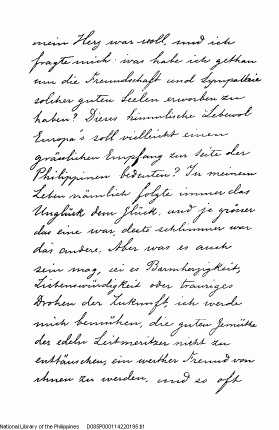 mein Herz war voll, und ich
fragte mich: was habe ich gethan
um die Freundschaft und Sympathie
solcher guten Seelen erworben zu
haben? Dieses himmlische Lebewol
Europa's soll vielleicht einen
grässlichen Empfang zur Seite der
Philippinen bedeuten? In meinem
Leben nämlich folgte immer das
Unglück dem Glück, und je grösser
das eine war, desto schlimmer war
das andere. Aber was es auch
sein mag, sei es Barmherzigkeit,
Liebenswürdigkeit oder trauriges
Drohen der Zukunft, ich werde
mich bemühen, die guten Gemüthe
der edeln Leitmeritzer nicht zu
enttäuschen, ein werther Freund von
ihnen zu werden, und so oft
National Library of the Philippines D00SP000114220195.tif